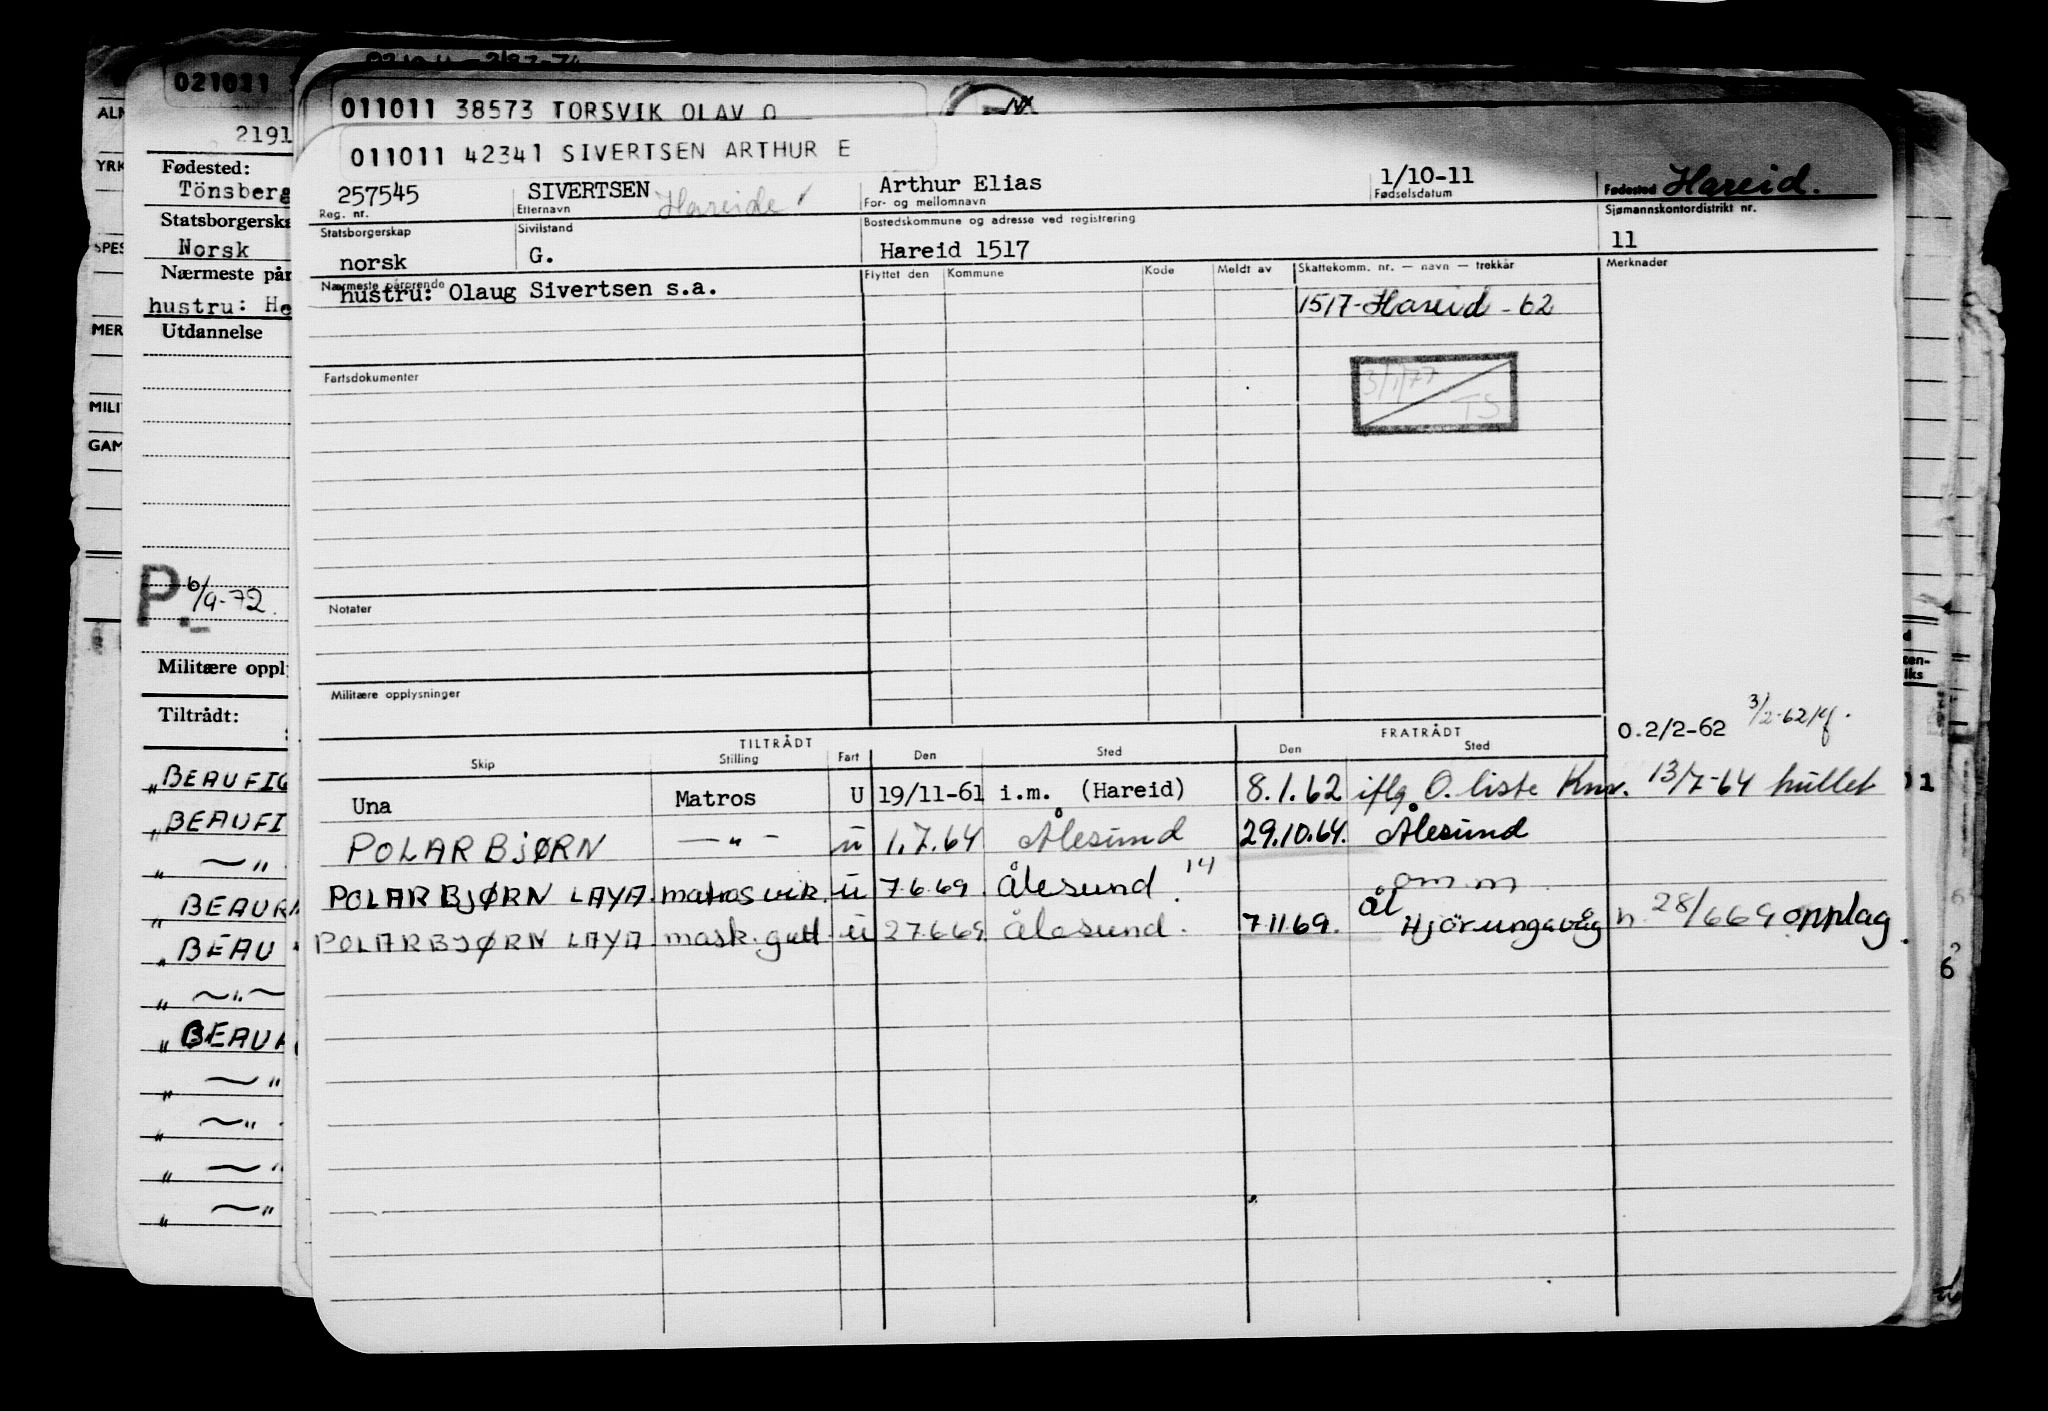 021011
2191
Fødested:
Tönsberg
Norsk
hustru:
Utdannelse
P. 6/9-72
Tiltrådt:
011011 38573 TORSVIK OLAV O
011011 42341 SIVERTSEN ARTHUR E
257545 SIVERTSEN Hareide Arthur Elias 1/10-11 Fødested Hareid.
Reg. nr. Etternavn For- og mellomnavn Fødselsdatum
Statsborgerskap Sivilstand Bostedskommune og adresse ved registrering Sjømannskontordistrikt nr.
norsk G. Hareid 1517 11
Nærmeste pårørende Flyttet den Kommune Kode Meldt av Skattekomm. nr. — navn — trekkår Merknader
hustru: Olaug Sivertsen s.a. 1517-Hareid - 62
3/1/77 TS
Fartsdokumenter
Notater
Militære opplysninger
O.2/2-62 3/2-62
TILTRÅDT FRATRÅDT
Skip Stilling Fart Den Sted Den Sted
Una Matros U 19/11-61 i.m. (Hareid) 8.1.62 iflg O. liste 13/7-64 hullet
POLARBJØRN —„— ū 1.7.64 Ålesund 29.10.64. Ålesund
POLARBJØRN LAYA. matros vik. ū 7.6.69. Ålesund. 14 omm
POLARBJØRN LAYA mask.gutt ū 27.6.69. Ålesund. 7.11.69. ål Hjörungavåg h. 28/6 69 opplag.